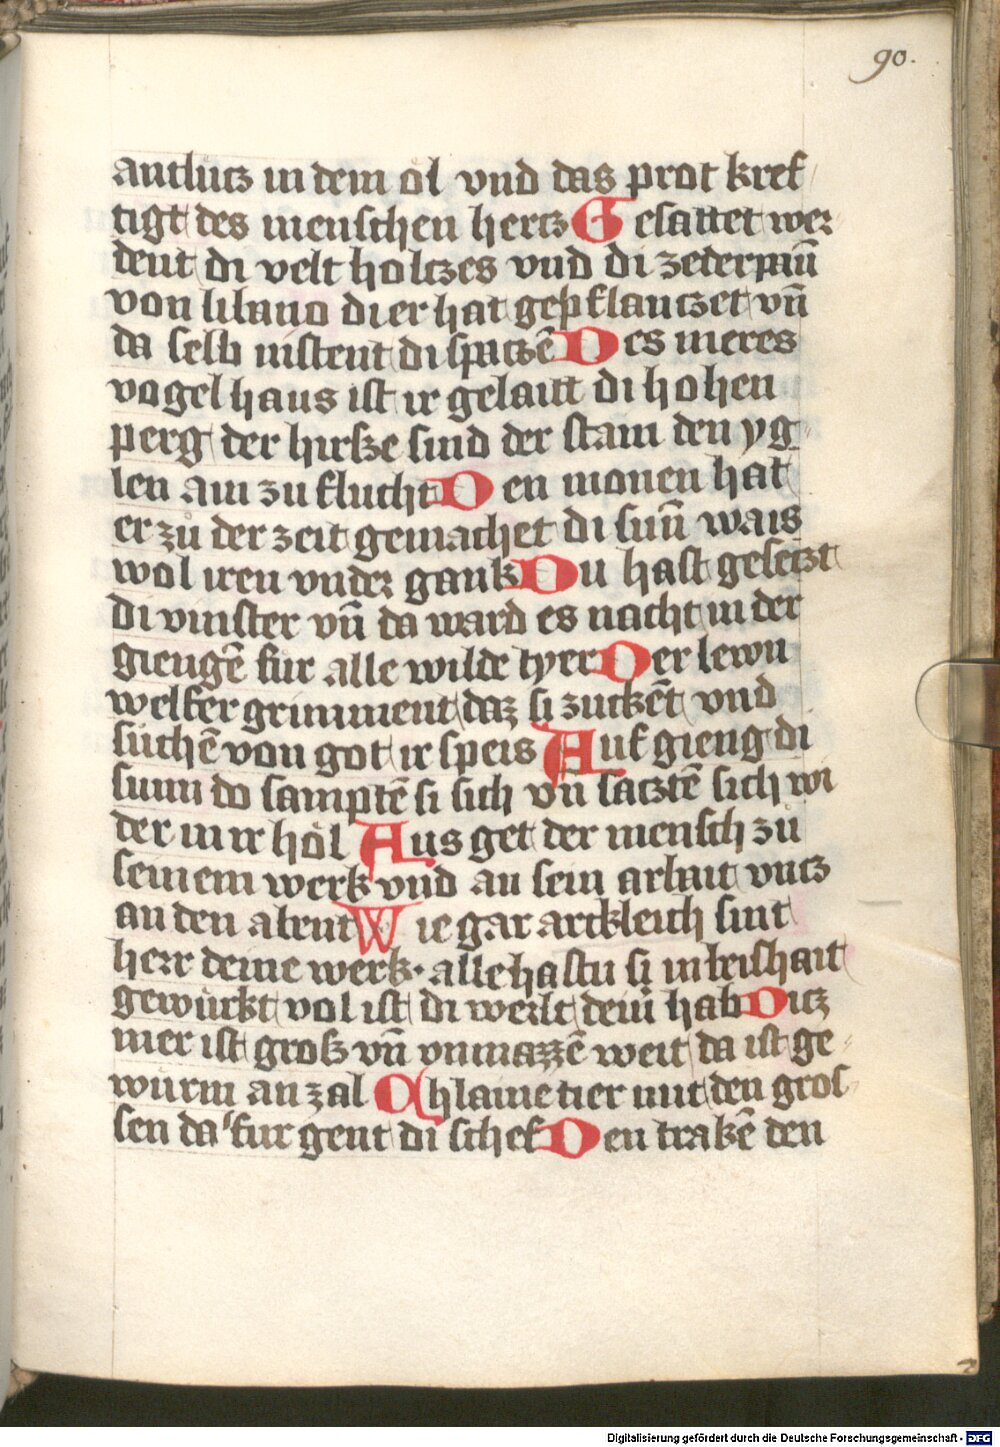 90.
antlutz in dem öl vnd das prot kref
tigt des menschen hertz Gesattet wer
dent di velt holtzes vnd di zederpaū
von libano di er hat gepflantzet vn̄
da selb nistent di spatzē Des meres
vogel haus ist ir gelaitt di hohen
perg der hirsze sind der stain den yg
len ain zu flucht Den monen hat
er zů der zeit gemachet di sun̄ wais
wol iren vnder gank Du hast gesetzt
di vinster vn̄ da ward es nacht in der
giengē für alle wilde tyer Der lewn
welfer grimment daz si zuckēt vnd
süchē von got ir speis Auf gieng di
sunn do samptē si sich vn̄ satztē sich wi
der in ir höl Aus get der mensch zů
seinem werk vnd an sein arbait vntz
an den abent Wie gar artkleich sint
herr deine werk · alle hastu si in beishait
gewürkt vol ist di werlt dein̄ hab Ditz
mer ist grosz vn̄ vnmazzē weit da ist ge
würm an zal Chlaine tier mit den gros
sen da fur gent di schef Den trakē den
Digitalisierung gefördert durch die Deutsche Forschungsgemeinschaft - DFG